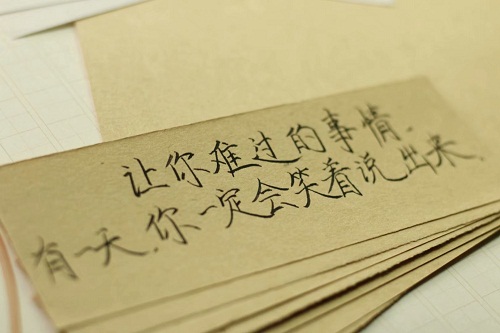 让你难过的事情.
有一天.你一定会笑着说出来.